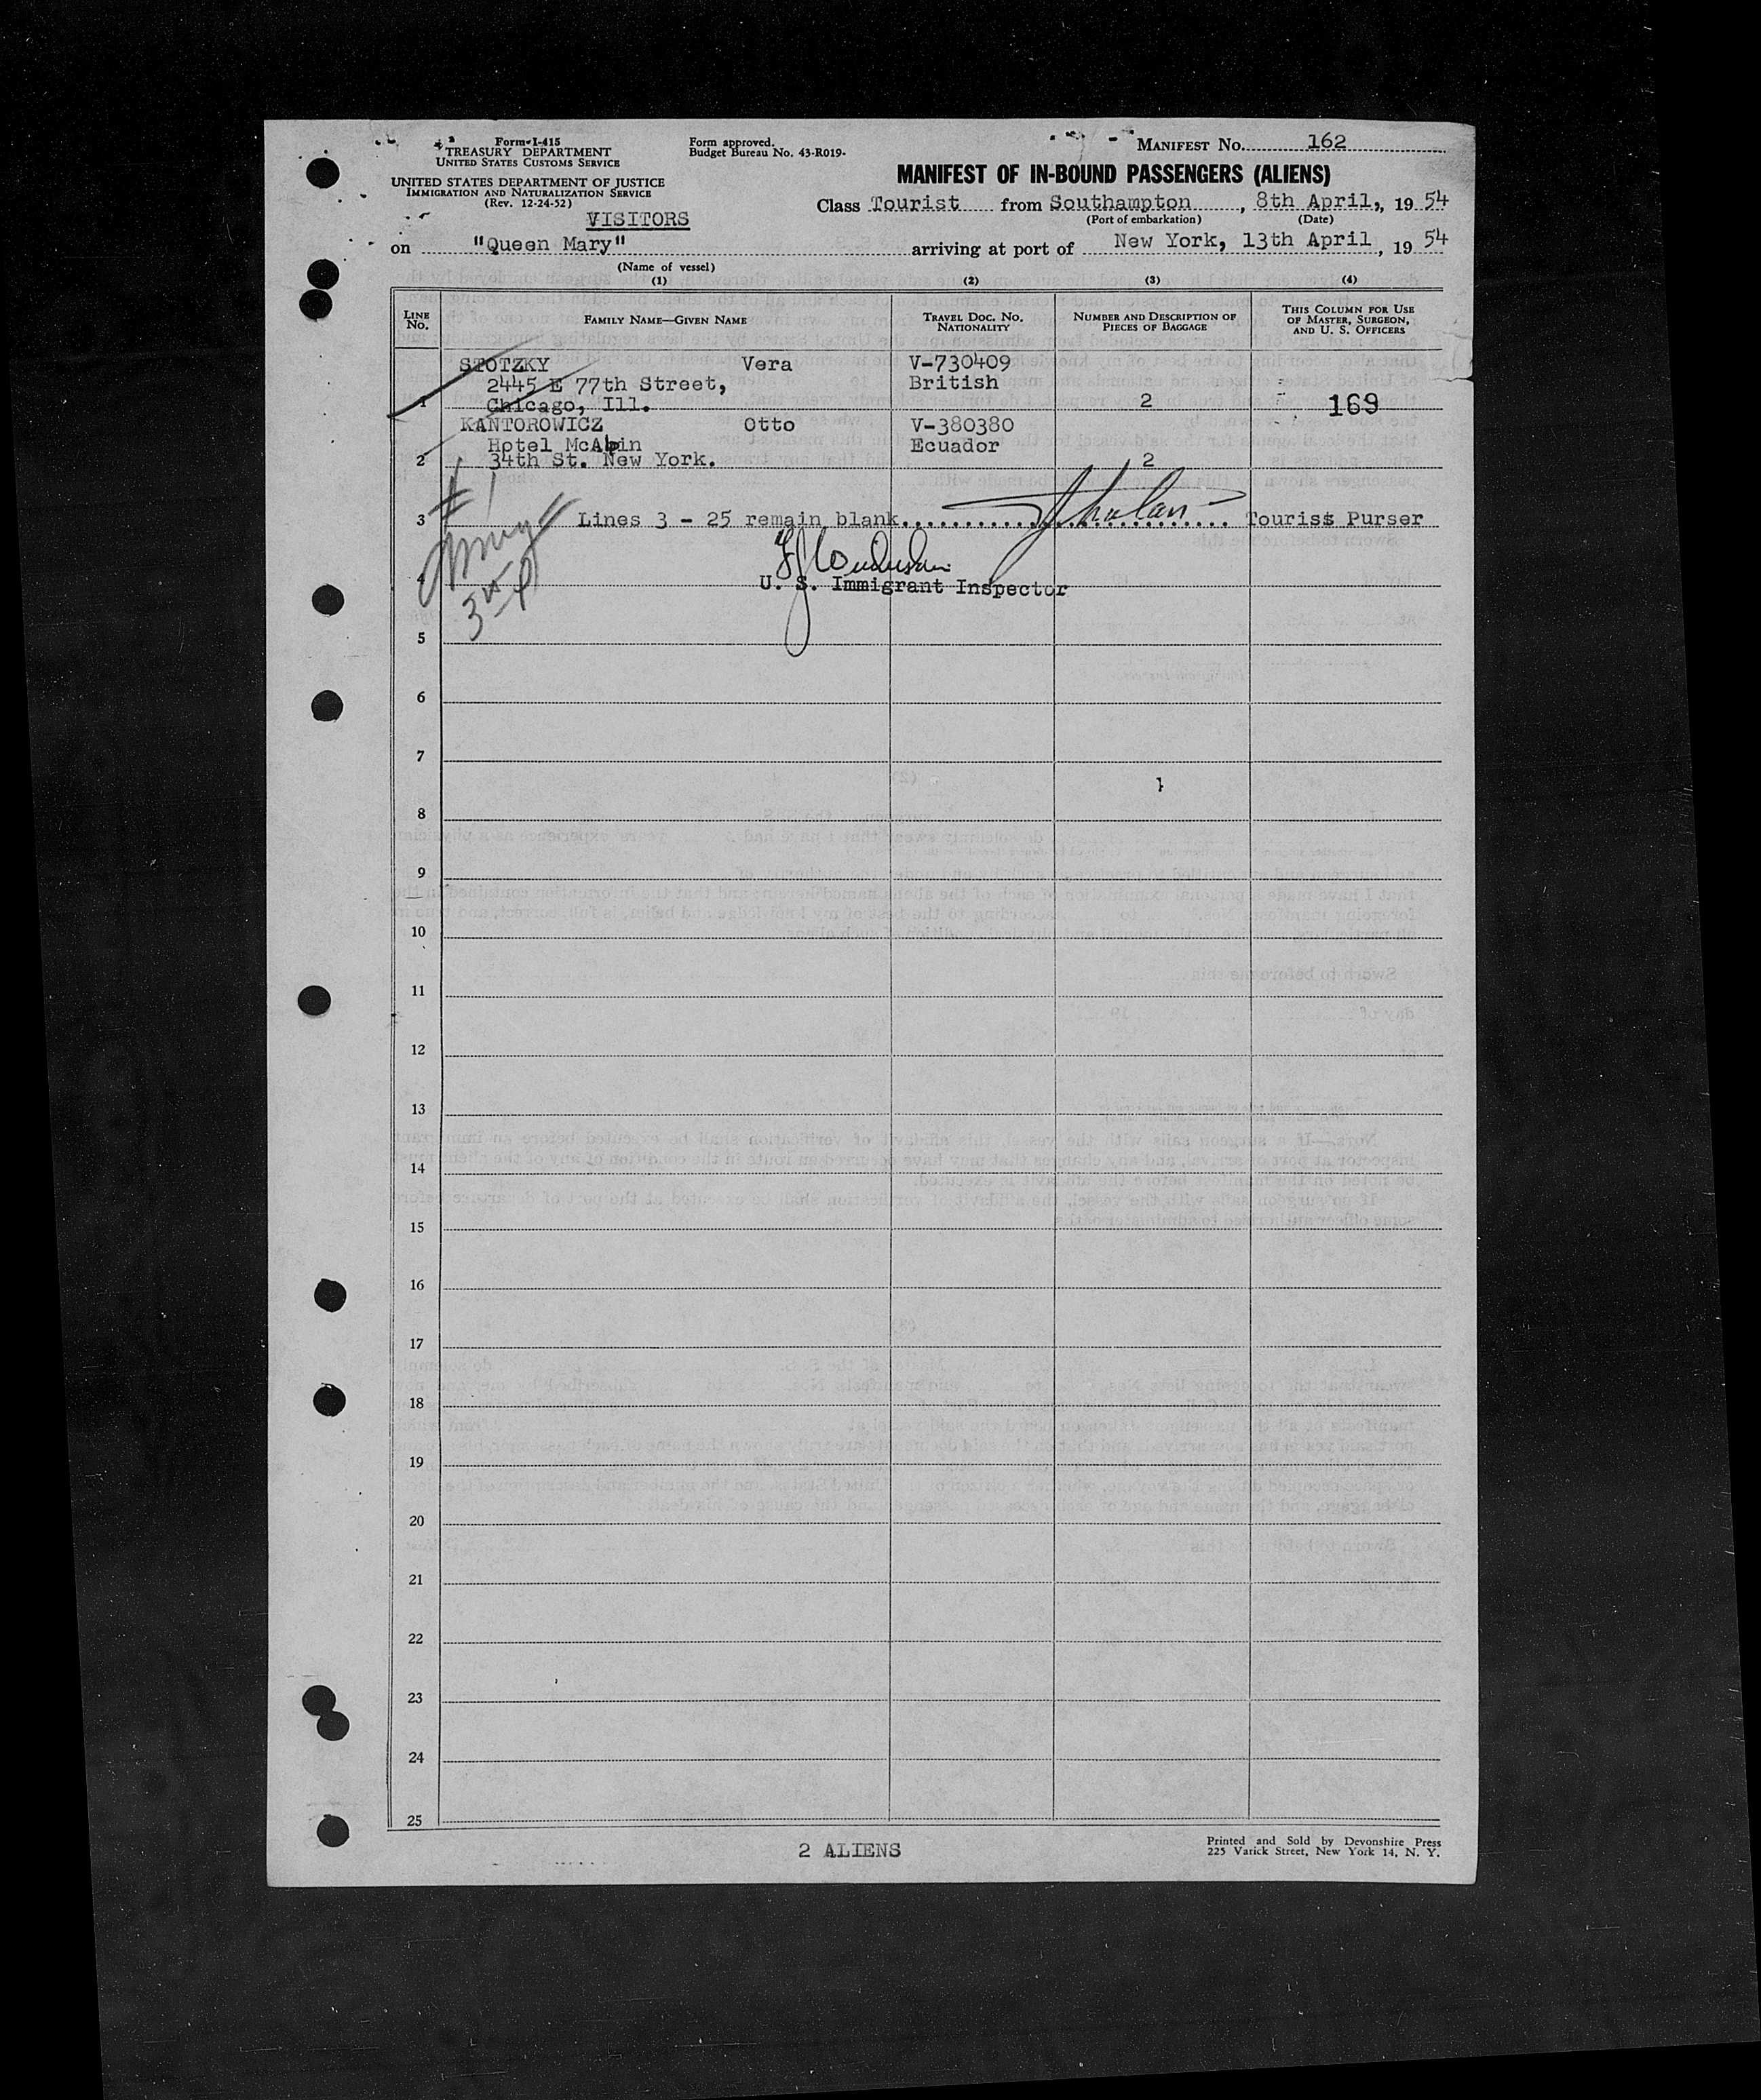 Form I-415
TREASURY DEPARTMENT
UNITED STATES CUSTOMS SERVICE
UNITED STATES DEPARTMENT OF JUSTICE
IMMIGRATION AND NATURALIZATION SERVICE
(Rev. 12-24-52)
Form approved.
Budget Bureau No. 43-R019-
MANIFEST No. 162
MANIFEST OF IN-BOUND PASSENGERS (ALIENS)
Class Tourist from Southampton, 8th April,, 19 54
(Port of embarkation) (Date)
VISITORS
on "Queen Mary" arriving at port of New York, 13th April, 19 54
(Name of vessel)
(1) (2) (3) (4)
LINE No. FAMILY NAME—GIVEN NAME TRAVEL DOC. No. NATIONALITY NUMBER AND DESCRIPTION OF PIECES OF BAGGAGE THIS COLUMN FOR USE OF MASTER, SURGEON, AND U. S. OFFICERS
STOTZKY Vera V-730409
2445 E 77th Street, British
1 Chicago, Ill. 2 169
KANTOROWICZ Otto V-380380
Hotel McAlpin Ecuador
2 34th St. New York. 2
3 Lines 3 - 25 remain blank. Tourist Purser
4 U. S. Immigrant Inspector
5
6
7
8
9
10
11
12
13
14
15
16
17
18
19
20
21
22
23
24
25
2 ALIENS
Printed and Sold by Devonshire Press
225 Varick Street, New York 14, N. Y.